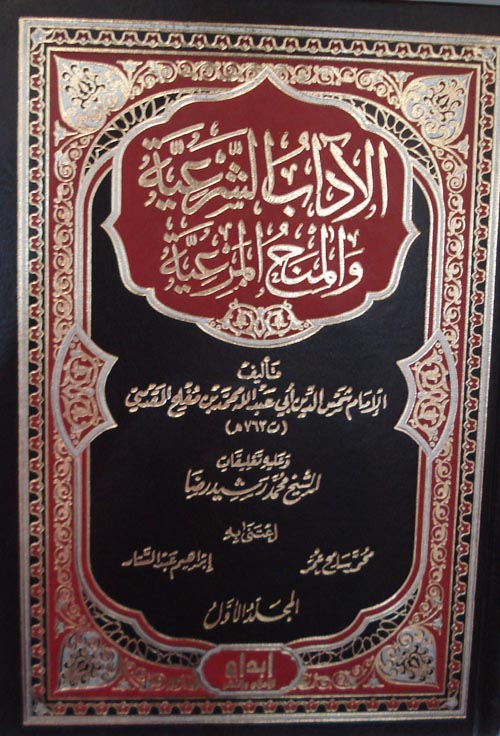 الآدابُ الشَّرْعِيَّة
والمِنَحُ المَرْعِيَّة
تأليف
الإمام شمس الدين أبي عبد الله محمد بن مفلح المقدسي
(ت ٧٦٣ هـ)
وعليه تعليقات
الشيخ محمد رشيد رضا
اعتنى به
محمد سامح عمر
إبراهيم عبد الستار
المجلد الأول